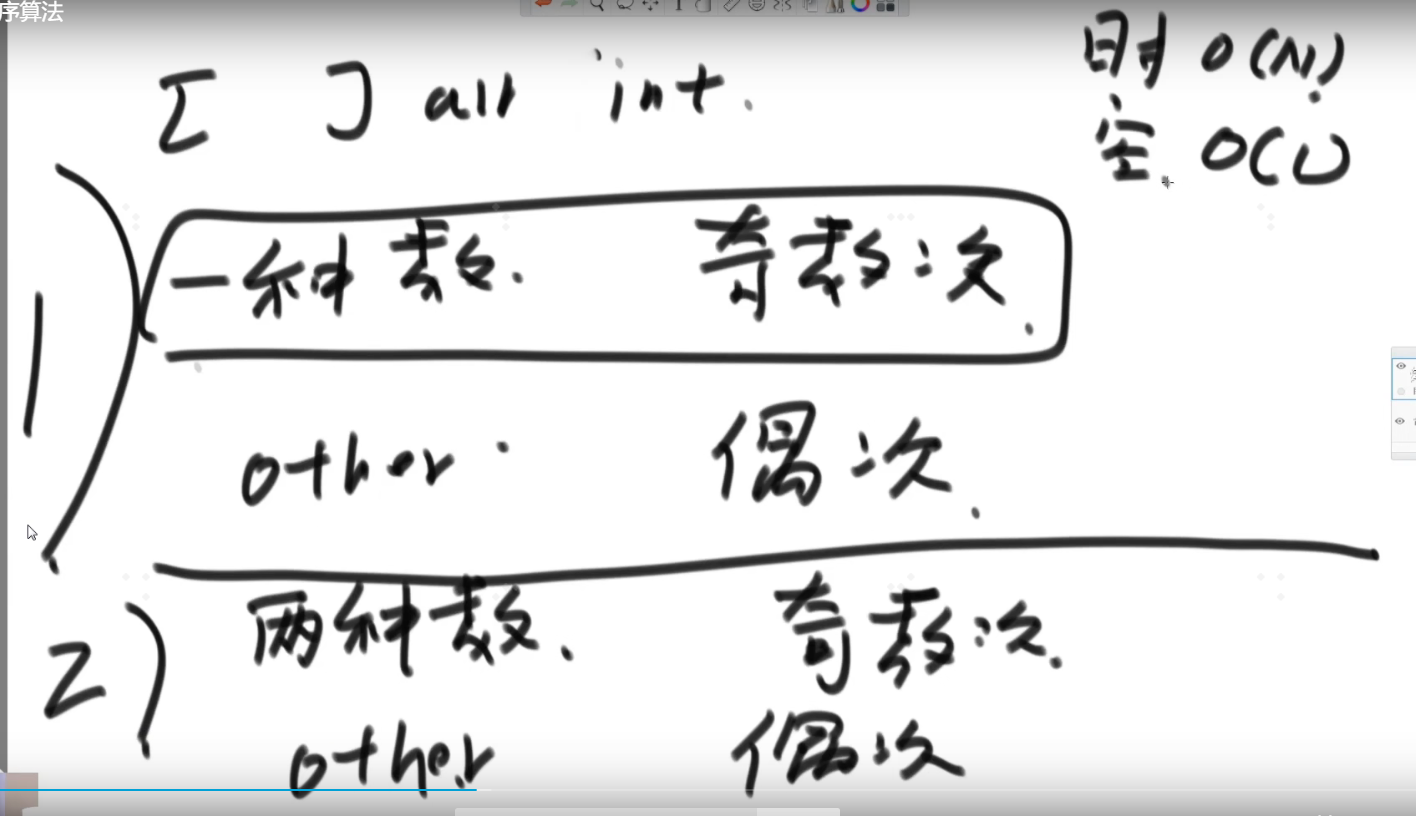 序算法
[ ] all int.
时 O(N)
空 O(1)
1) 一种数. 奇数次.
other 偶次.
2) 两种数. 奇数次.
other 偶次